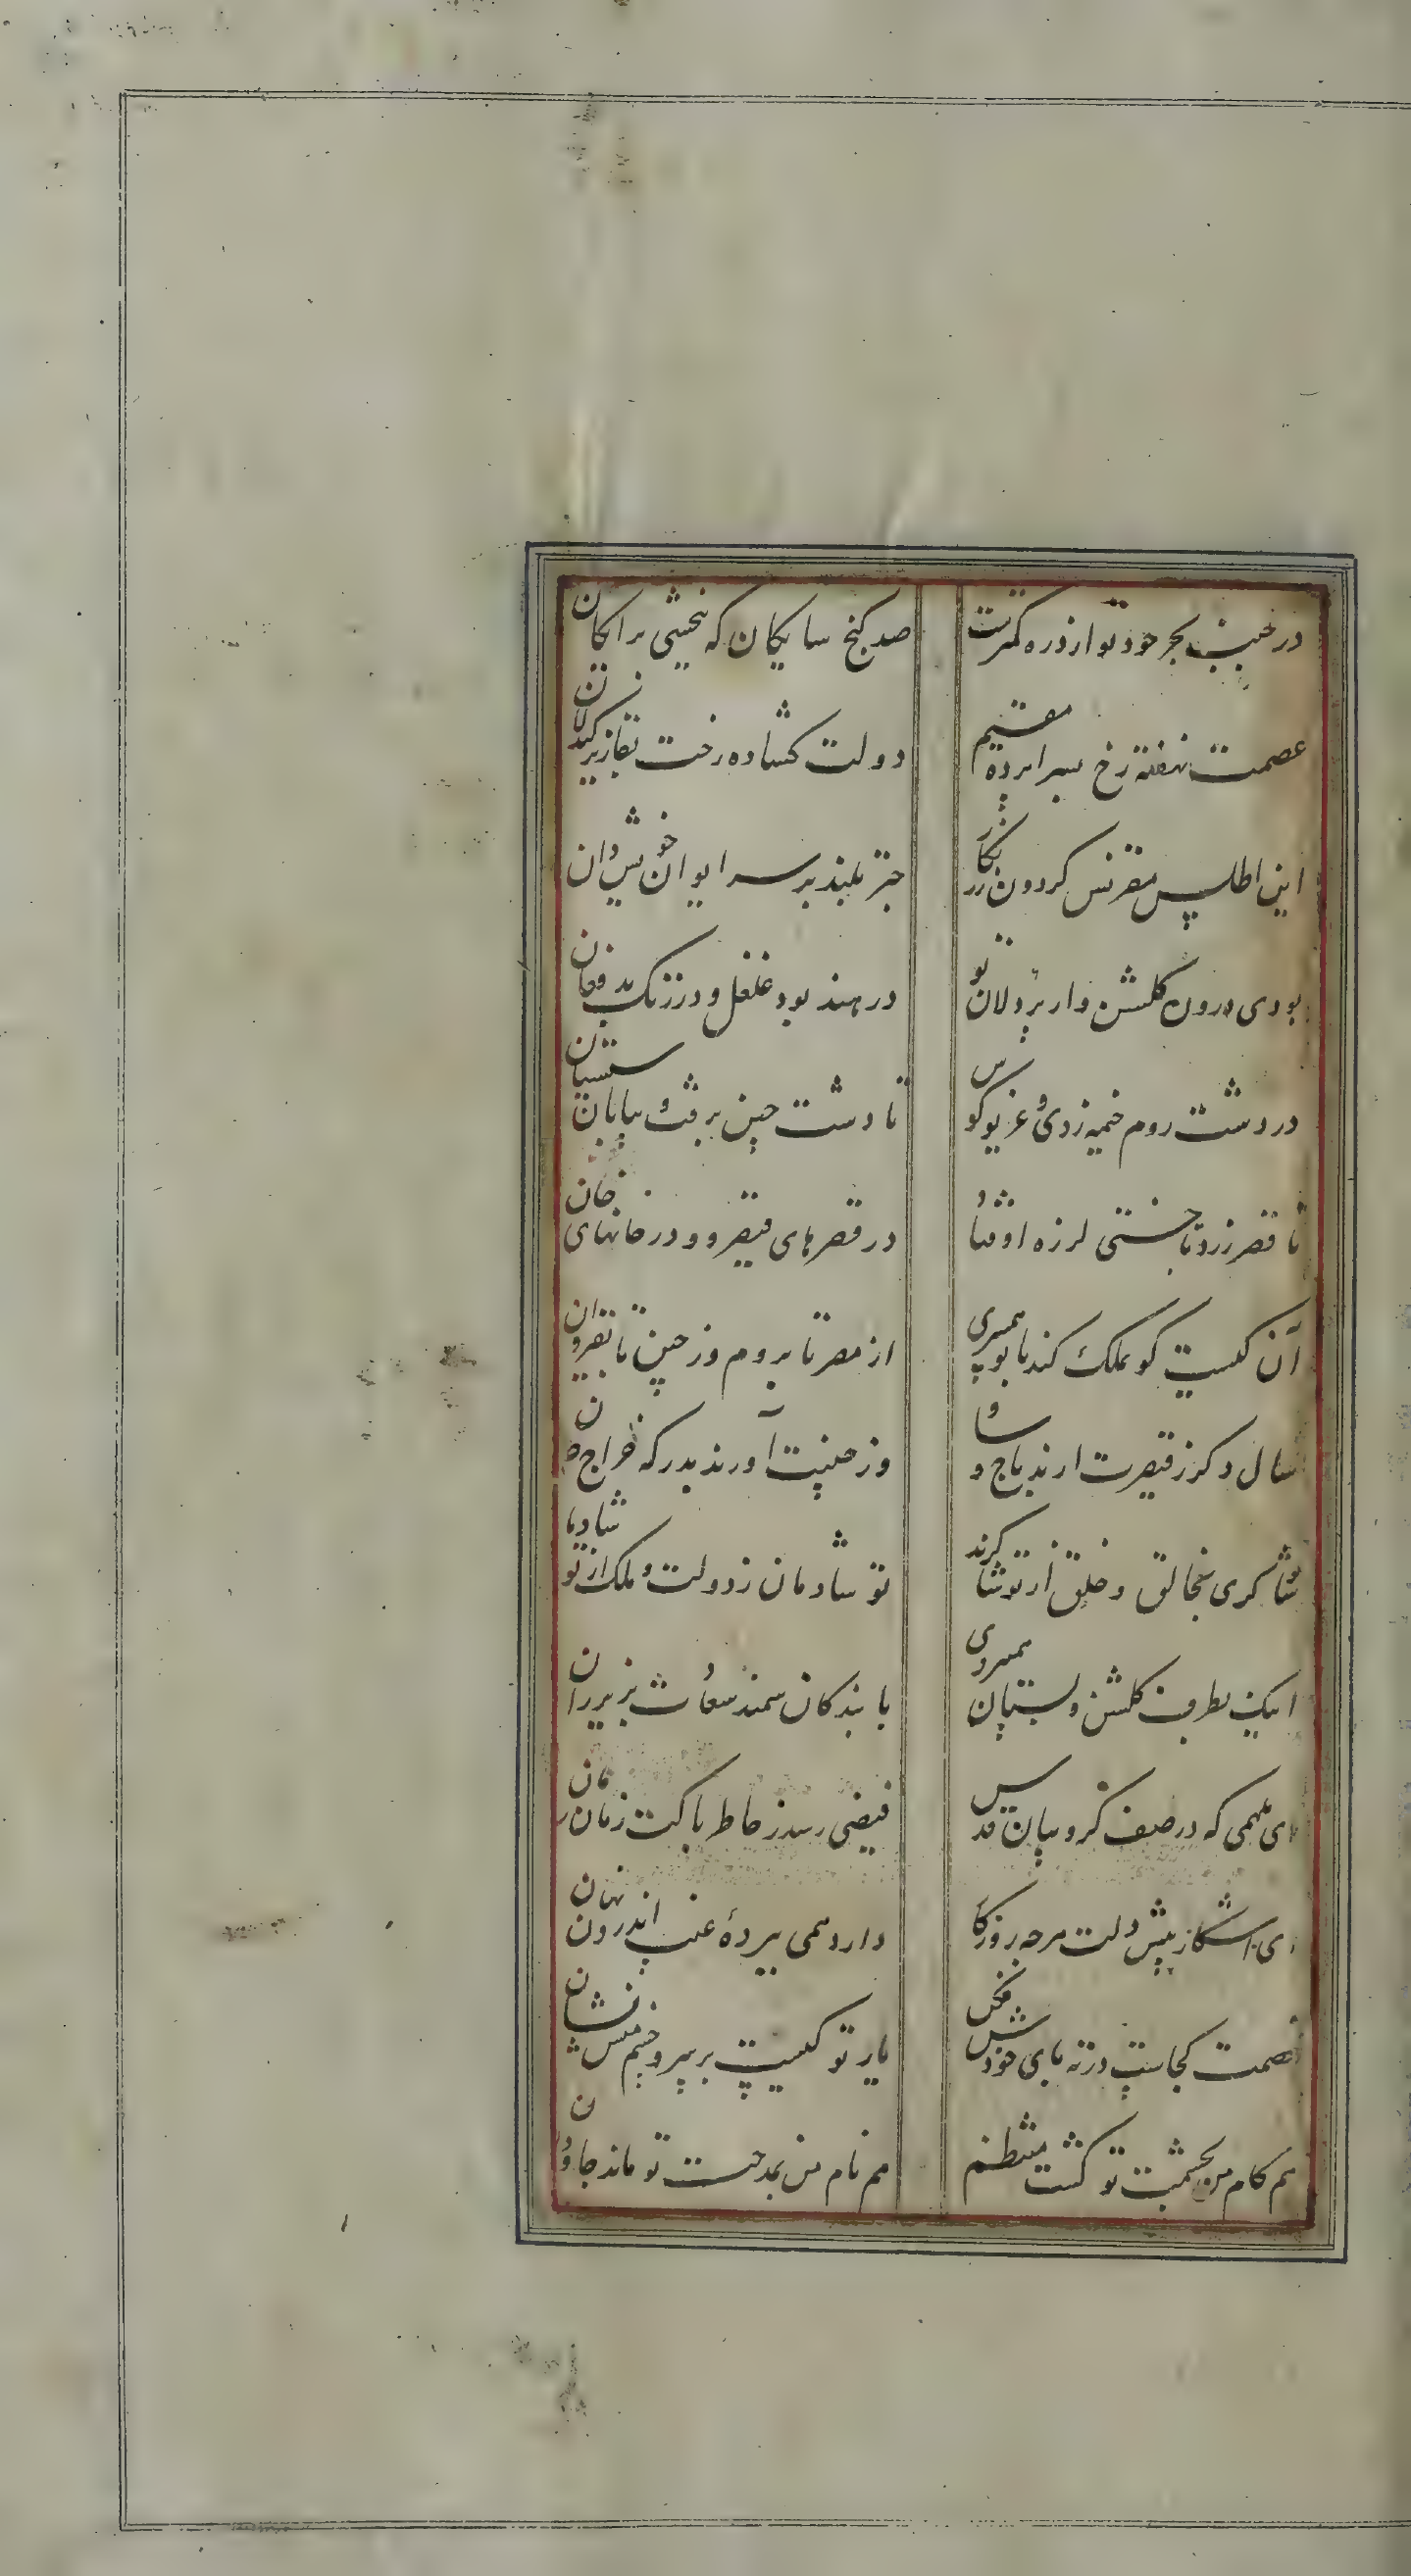 در جنب بحر جود تو از ذره کمترست
صد کنج سایکان که بخشی برایکان
عصمت نهفته رخ بسرا پرده مقیم
دولت کشاده رخت بقا زیر کندلان
این اطلس مقرنس کردون زر نکار
چتر بلند بر سر ایوان خویش دان
بودی درون کلشن و از پر دلان تو
در هند بود غلغل و در زنک بد فغان
در دشت روم خیمه زدی و غریو کوس
تا دشت چین برفت و بیابان سیستان
تا قصر زرد تاختی لرزه اوفتاد
در قصرهای قیصر و در خانهای خان
آن کیست کو بملک کند با تو همسری
از مصر تا بروم و ز چین تا بقیروان
سال دکر ز قیصرت آرند باج و ساو
وز چینت آورند بدرکه خراج خان
تو شاکری بخالق و خلق از تو شاکرند
تو شادمان ز دولت و ملک از تو شادمان
اینک بطرف کلشن و بستان همی روی
با بندکان سمند سعادت بزیر ران
ای ملهمی که در صف کروبیان قدس
فیضی رسد ز خاطر پاکت زمان زمان
ای آشکار پیش دلت هرچه روزکار
دارد همی ببرده غیب اندرون نهان
خصمت کجاست در ته پای خودش فکن
یار تو کیست بر سر و چشم منش نشان
هم کام من بحشمت تو کشت منتظم
هم نام من بمدحت تو ماند جاودان